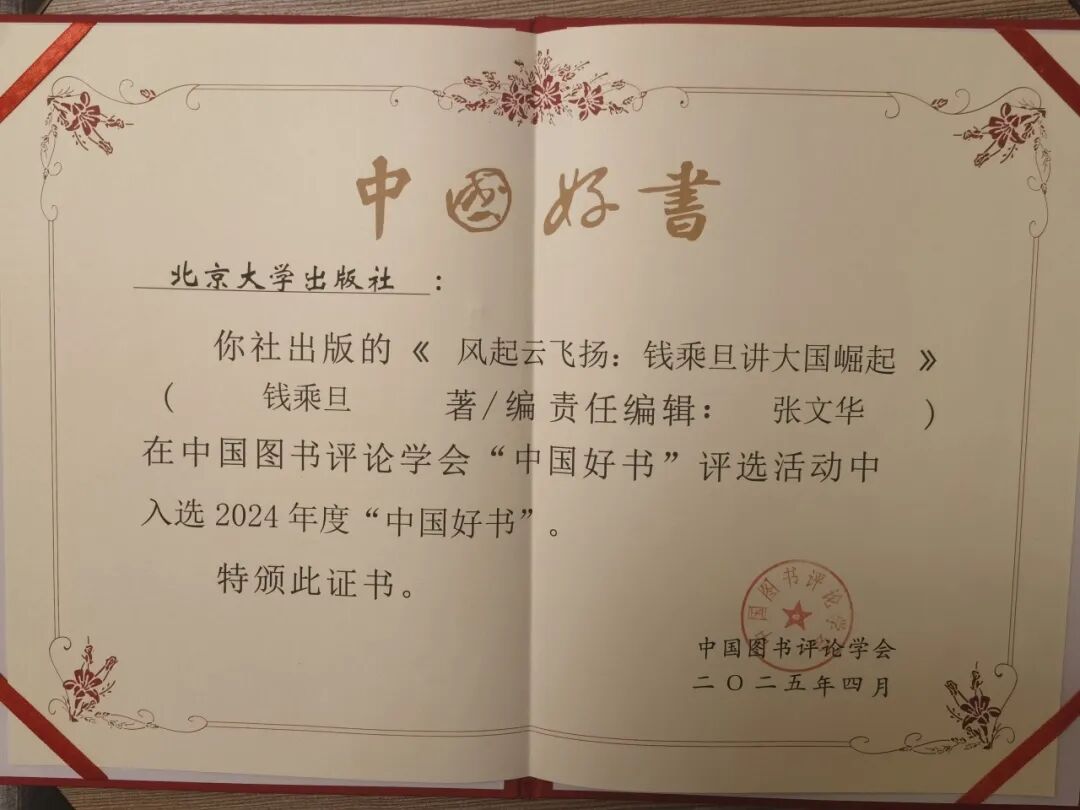 中國好書
北京大学出版社：
你社出版的《 风起云飞扬：钱乘旦讲大国崛起 》
（ 钱乘旦 著/编 责任编辑： 张文华 ）
在中国图书评论学会“中国好书”评选活动中
入选2024年度“中国好书”。
特颁此证书。
中国图书评论学会
中国图书评论学会
二〇二五年四月